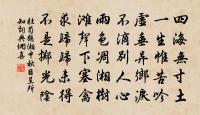 四海無寸土
一生惟苦吟
虛垂異鄉淚
不滴別人心
雨色凋湘樹
灘聲下塞禽
求歸歸未得
不是擲光陰
杜荀鶴湘中秋日呈所
知詞典網集